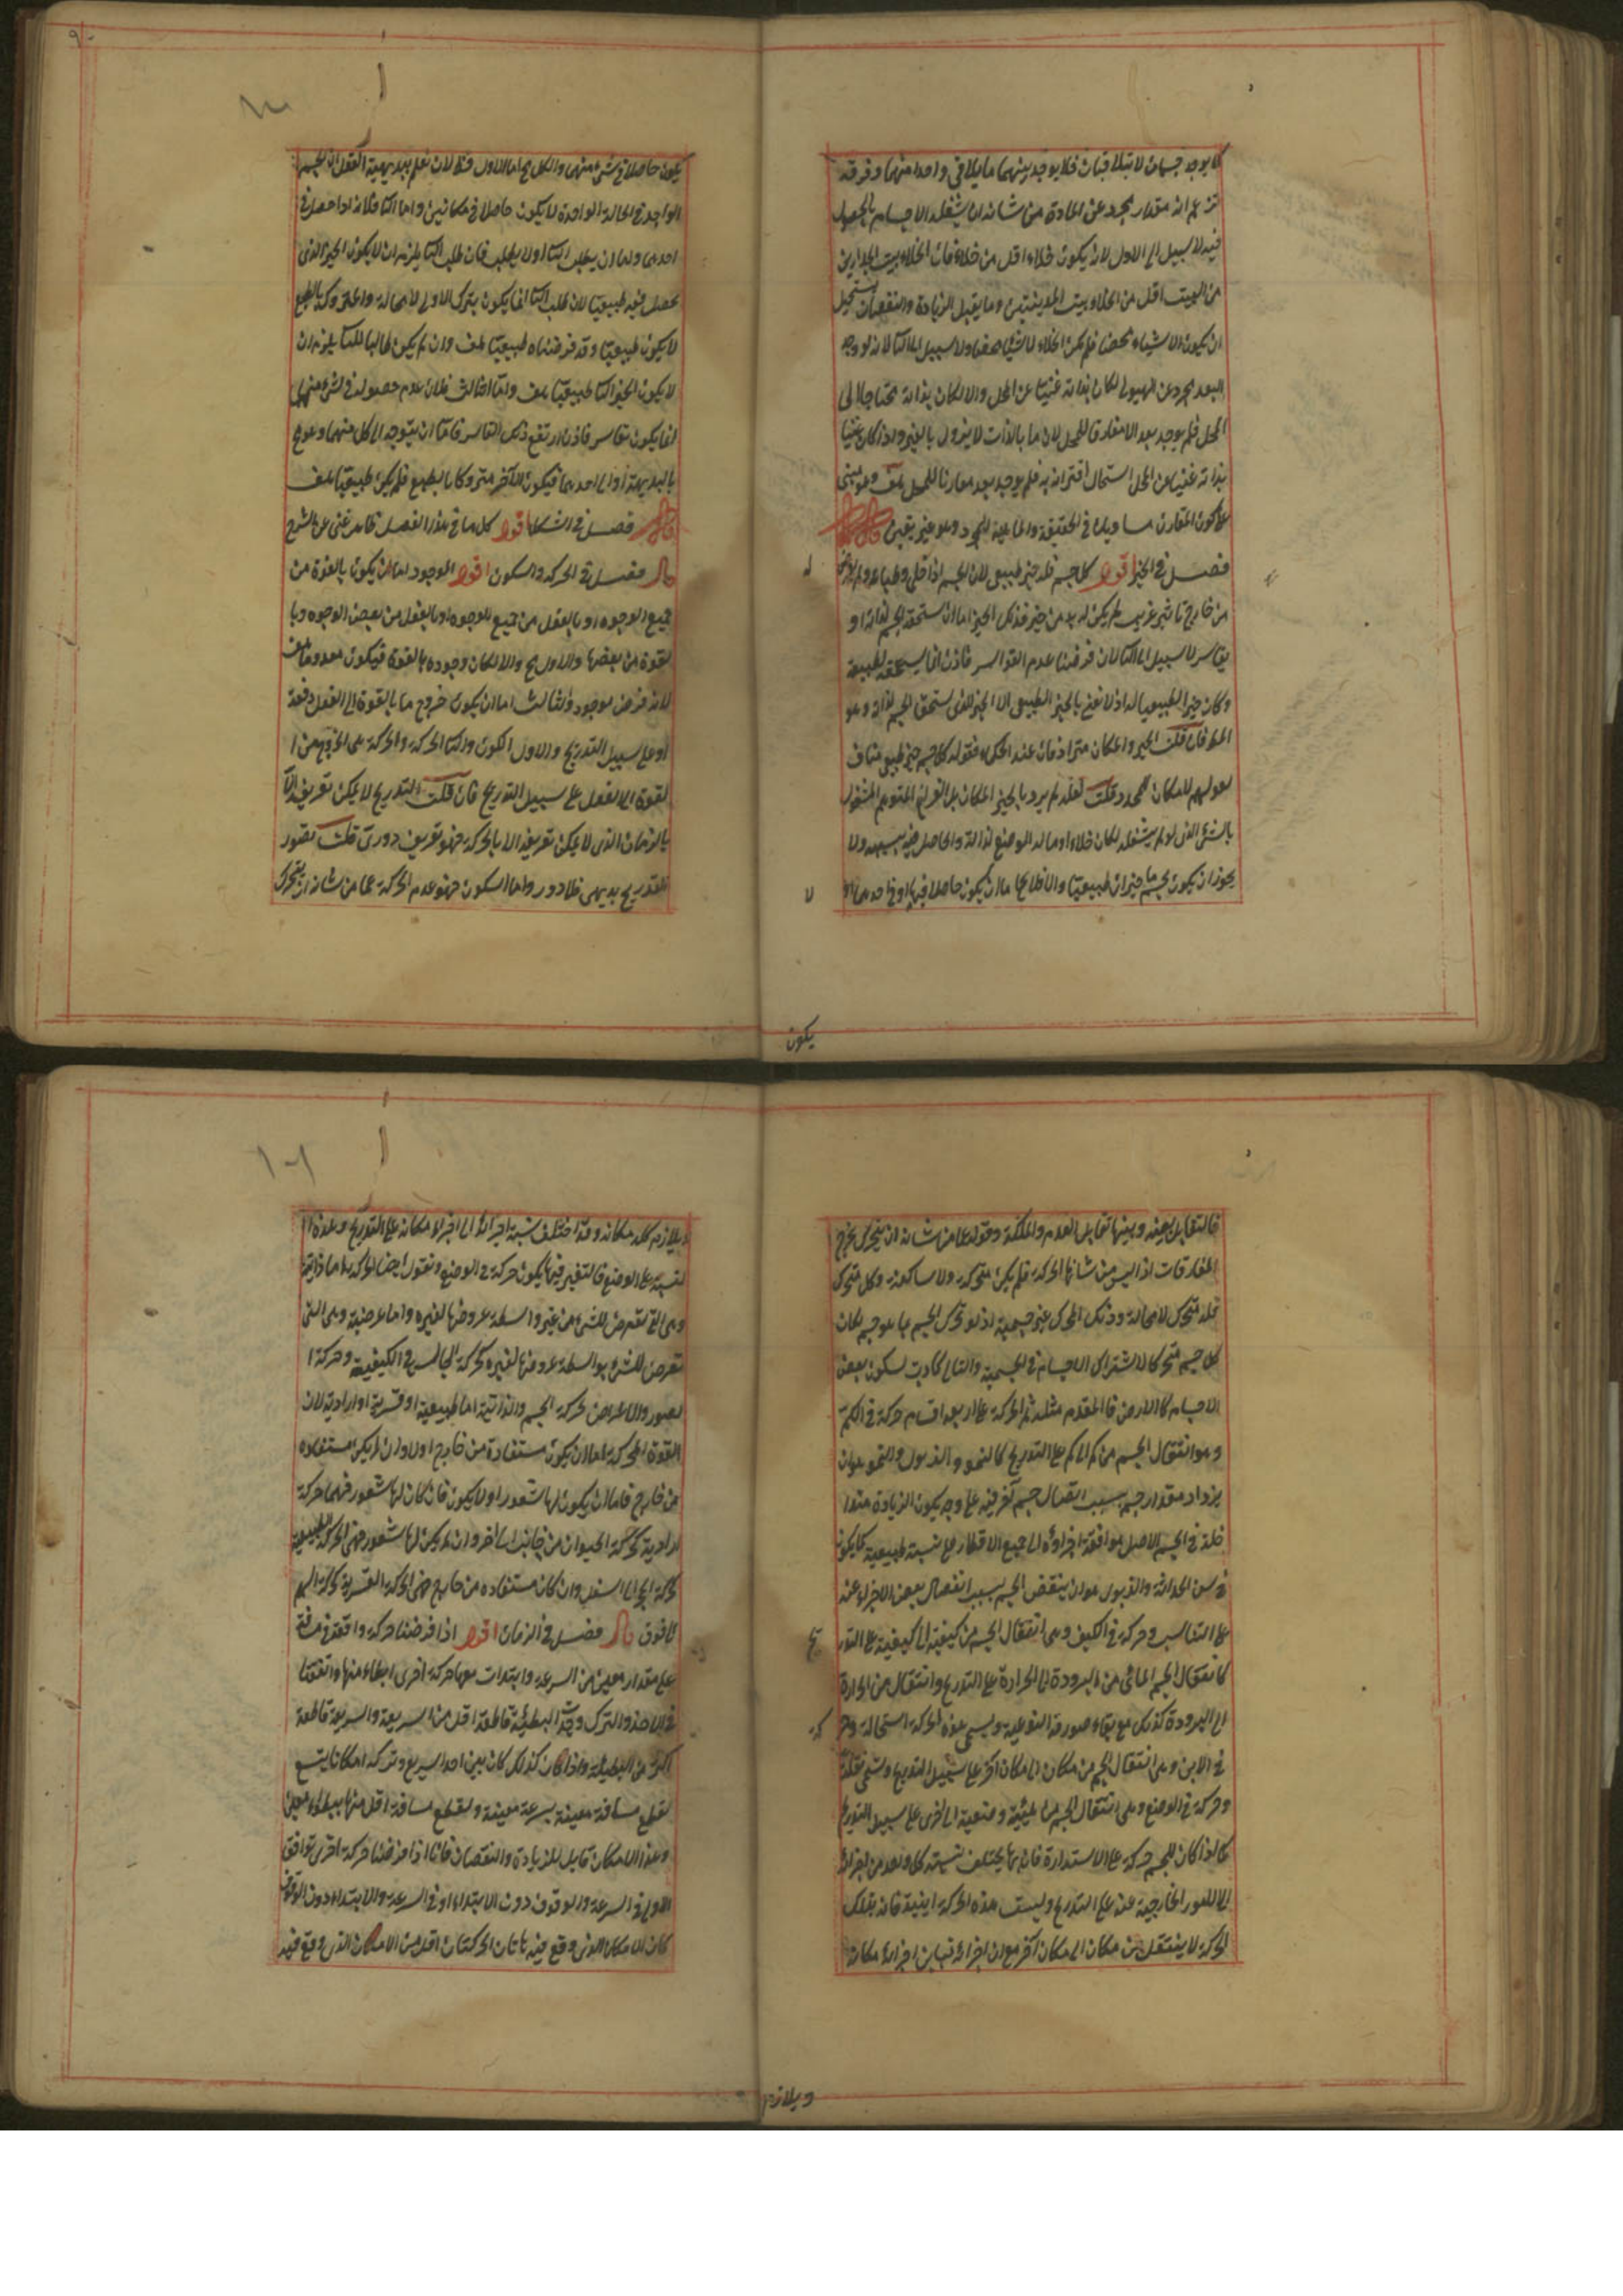 كما يوجد جسمان لا يتلاقيان فلا يوجد بينهما ما يلاقي واحدا منهما وفرقة
تزعم انه مقدار مجرد عن المادة من شانه ان يشغله الاجسام بالحصول
فيه لا سبيل الى الاول لانه يكون خلاء اقل من خلاء فان الخلاء بين الجدارين
من البيت اقل من الخلاء بين المدينتين وما يقبل الزيادة والنقصان يستحيل
ان يكون لا شيئا محضا فلم يكن الخلاء لا شيئا محضا ولا سبيل الى الثا لانه لو وجد
البعد مجرد عن الهيولى لكان بذاته غنيا عن المحل والا لكان بذاته محتاجا الى
المحل فلم يوجد بعد الا مفارقا للمحل لان ما بالذات لا يزول بالغير واذا كان غنيا
بذاته غنيا عن المحل استحال اقترانه به فلم يوجد بعد مقارنا للمحل هف وهو مبنى
على كون المقارن مساويا له في الحقيقة والماهية للمجرد وهو غير يقين قال
فصل في الحيز اقول كل جسم فله حيز طبيعى لان الجسم اذا خلى وطباعه ولم يعرض
من خارج تاثير غريب لم يكن له بد من حيز فذلك الحيز اما ان يستحقه الجسم لذاته او
بقاسر لا سبيل الى الثا لانا فرضنا عدم القواسر فاذن انما يستحقه لطبيعة
وكان حيزا طبيعيا له اذ لا نعنى بالحيز الطبيعى الا الحيز الذى يستحق الجسم لذاته وهو
المط فان قلت الحيز والمكان مترادفان عند الحكماء فقوله كل جسم حيز طبيعى مناف
لقولهم لا مكان للمحدد قلت لعله لم يرد بالحيز المكان بل الفراغ المتوهم المشغول
بالشئ الذى لو لم يشغله لكان خلاء او ما له الوضع لذاته والحاصل فيه بسببه ولا
يجوز ان يكون لجسم ما حيزان طبيعيا والا فاما ان يكون حاصلا فيهما او في احدهما او
يكون
يكون حاصلا في شئ منهما والكل مح اما الاول فظ لانا نعلم ببديهية العقل ان الجسم
الواحد في الحالة الواحدة لا يكون حاصلا في مكانين واما الثا فلانه اذا حصل في
احدهما واما ان يطلب الثا او لا يطلب فان طلب الثا يلزم ان لا يكون الحيز الذى
يحصل فيه طبيعيا لان طلب الثا انما يكون بترك الاول لا محالة والمتروك بالطبع
لا يكون طبيعيا وقد فرضناه طبيعيا هف وان لم يكن طالبا للثا يلزم ان
لا يكون الحيز الثا طبيعيا هف واما الثالث فلان عدم حصوله في شئ منهما
انما يكون بقاسر فاذن ارتفع ذلك القاسر فاما ان يتوجه الى كل منهما وهو مح
بالبديهة او الى احدهما فيكون الآخر متروكا بالطبع فلم يكن طبيعيا هف
قال فصل في الشكل اقول كل ما في هذا الفصل ظاهر غنى عن الشرح
قال فصل في الحركة والسكون اقول الموجود اما ان يكون بالقوة من
جميع الوجوه او بالفعل من جميع الوجوه او بالفعل من بعض الوجوه وبا
لقوة من بعضها والاول مح والا لكان وجوده بالقوة فيكون معدوما هف
لانه فرض موجود والثالث اما ان يكون خروج ما بالقوة الى الفعل دفعة
او على سبيل التدريج والاول الكون والثا الحركة والحركة هى الخروج من ا
لقوة الى الفعل على سبيل التدريج فان قلت التدريج لا يمكن تعريفه الا
بالزمان الذى لا يمكن تعريفه الا بالحركة فهو تعريف دورى قلت تصور
التدريج بديهى فلا دور واما السكون فهو عدم الحركة عما من شانه ان يتحرك
فالتقابل بينه وبينها تقابل العدم والملكة وقوله عما من شانه ان يتحرك يخرج
المفارقات اذ ليس من شانها الحركة فلم يكن متحركة ولا ساكنة وكل متحرك
فله محرك لا محالة وذلك المحرك غير جسمية اذ لو تحرك الجسم بما هو جسم لكان
كل جسم متحركا لاشتراك الاجسام في الجسمية والتالى كاذب لسكون بعض
الاجسام كالارض فالمقدم مثله ثم الحركة على اربعة اقسام حركة في الكم
وهو انتقال الجسم من كم الى كم على التدريج كالنمو والذبول والنمو هو ان
يزداد مقدار جسم بسبب اتصال جسم آخر فيه على وجه يكون الزيادة متدا
خلة في الجسم الاصل موافقة اجزاؤه الى جميع الاقطار على نسبة طبيعية كما يكون
في سن الحداثة والذبول هو ان ينقص الجسم بسبب انفصال بعض الاجزاء عنه
على التناسب وحركة في الكيف وهى انتقال الجسم من كيفية الى كيفية على التدر
كانتقال الجسم المائى من البرودة الى الحرارة على التدريج وانتقال من الحرارة
الى البرودة كذلك مع بقاء صورته النوعية ويسمى هذه الحركة استحالة وحر
في الاين وهى انتقال الجسم من مكان الى مكان آخر على سبيل التدريج وتسمى نقلة
وحركة في الوضع وهى انتقال الجسم من هيئة وضعية الى اخرى على سبيل التدريج
كما اذا كان للجسم حركة على الاستدارة فانه بها يختلف نسبته كل واحد من اجزائه
الى الامور الخارجية عنه على التدريج وليست هذه الحركة اينية فانه بتلك
الحركة لا ينتقل من مكان الى مكان آخر مع ان اجزائه تباين اجزاء مكانه
ويلازم
ويلازم كله مكانه وقد اختلف نسبة اجزائه الى اجزاء مكانه على التدريج وهذه ا
لنسبة على الوضع فالتغير فيها يكون حركة في الوضع ونقول ايضا الحركة اما ذاتية
وهى التى تعرض للشئ من غير واسطة عروضها لغيره واما عرضية وهى التى
تعرض للشئ بواسطة عروضها لغيره كحركة الجالس في الكيفية وحركة ا
لصور والاعراض لحركة الجسم والذاتية اما طبيعية او قسرية او ارادية لان
القوة المحركة اما ان يكون مستفادة من خارج او لا وان لم يكن مستفاده
من خارج فاما ان يكون لها شعور او لا يكون فان كان لها شعور فهى حركة
ارادية كحركة الحيوان من جانب الى آخر وان لم يكن لها شعور فهى الحركة الطبيعية
كحركة الحجر الى اسفل وان كان مستفاده من خارج فهى الحركة القسرية كحركة السهم
الى فوق قال فصل في الزمان اقول اذا فرضنا حركة واقعة في مسافة
على مقدار معين من السرعة وابتدات معها حركة اخرى ابطاء منها واتفقتا
في الاخذ والترك وجدت البطيئة قاطعة اقل من السريعة والسريعة قاطعة
اكثر من البطيئة واذا كان كذلك كان بين اخذ السريع وتركه امكانا يتسع
لقطع مسافة معينة بسرعة معينة ولقطع مسافة اقل منها ببطاء معين
وهذا الامكان قابل للزيادة والنقصان فانا اذا فرضنا حركة اخرى توافق
الاولى في السرعة والوقوف دون الابتداء او في السرعة والابتداء دون الوقوف
كان الامكان الذى وقع فيه هاتان الحركتان اقل من الامكان الذى وقع فيه